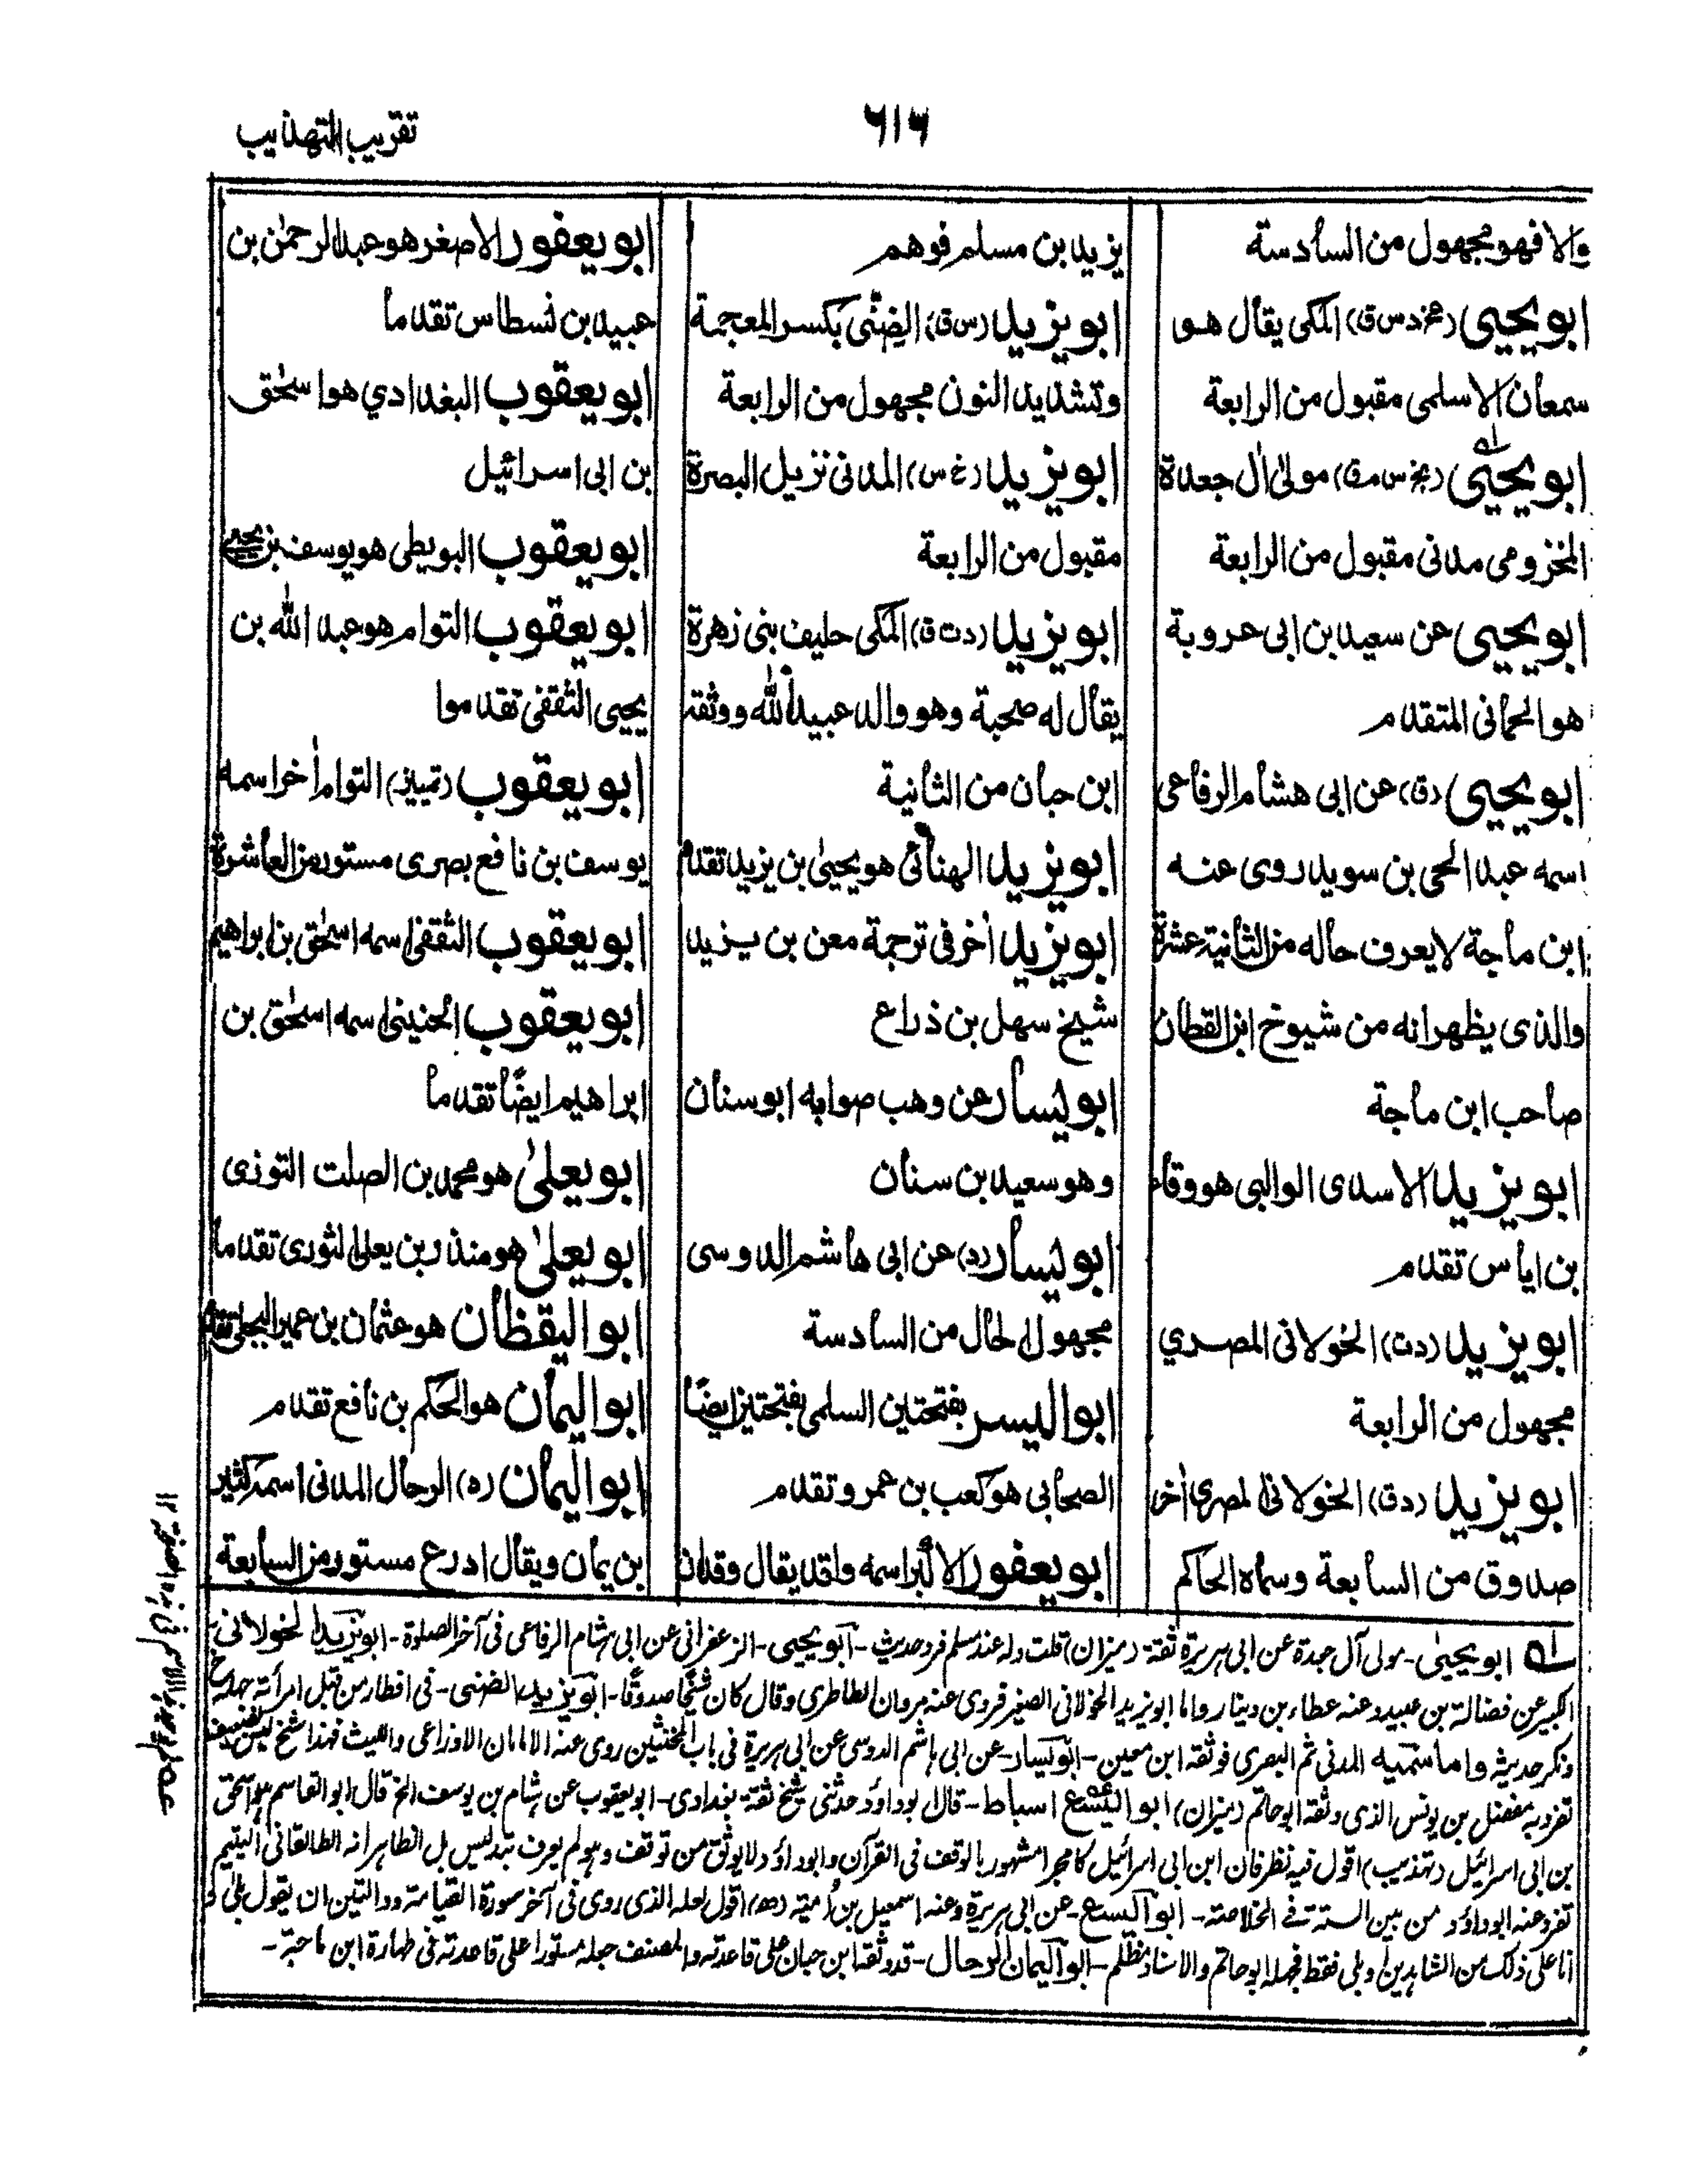 تقريب التهذيب
٦١٦
والا فهو مجهول من السادسة
ابو يحيى (عخ د س ق) المكى يقال هو
سمعان الاسلمى مقبول من الرابعة
ابو يحيىٰ (بخ س م ق) مولىٰ اٰل جعدة
المخزومى مدنى مقبول من الرابعة
ابو يحيى عن سعيد بن ابى عروبة
هو الحمانى المتقدم
ابو يحيى (ق) عن ابى هشام الرفاعى
اسمه عبد الحى بن سويد روى عنه
ابن ماجة لا يعرف حاله من الثانية عشرة
والذى يظهر انه من شيوخ ابن القطان
صاحب ابن ماجة
ابو يزيد الاسدى الوالبى هو وقاء
بن اياس تقدم
ابو يزيد (د ت) الخولانى المصري
مجهول من الرابعة
ابو يزيد (د ق) الخولانى المصرى اٰخر
صدوق من السابعة وسماه الحاكم
يزيد بن مسلم فوهم
ابو يزيد (س ق) الضِنّى بكسر المعجمة
وتشديد النون مجهول من الرابعة
ابو يزيد (خ س) المدنى نزيل البصرة
مقبول من الرابعة
ابو يزيد (د ت ق) المكى حليف بنى زهرة
يقال له صحبة وهو والد عبيد الله ووثقه
ابن حبان من الثانية
ابو يزيد الهنائى هو يحيىٰ بن يزيد تقدم
ابو يزيد اٰخر فى ترجمة معن بن يزيد
شيخ سهل بن ذراع
ابو يسار عن وهب صوابه ابو سنان
وهو سعيد بن سنان
ابو يسار (د) عن ابى هاشم الدوسى
مجهول الحال من السادسة
ابو اليسر بفتحتين السلمى بفتحتين ايضًا
الصحابى هو كعب بن عمرو تقدم
ابو يعفور الاكبر اسمه واقد يقال وقدان
ابو يعفور الاصغر هو عبد الرحمٰن بن
عبيد بن نسطاس تقدما
ابو يعقوب البغدادي هو اسحٰق
بن ابى اسرائيل
ابو يعقوب البويطى هو يوسف بن يحيى
ابو يعقوب التوام هو عبد الله بن
يحيى الثقفى تقدموا
ابو يعقوب (تمييز) التوام اٰخر اسمه
يوسف بن نافع بصرى مستور من العاشرة
ابو يعقوب الثقفى اسمه اسحٰق بن ابراهيم
ابو يعقوب الحنينى اسمه اسحٰق بن
ابراهيم ايضًا تقدما
ابو يعلىٰ هو محمد بن الصلت التوزى
ابو يعلىٰ هو منذر بن يعلى الثورى تقدما
ابو اليقظان هو عثمان بن عمير البجلى تقدم
ابو اليمان هو الحكم بن نافع تقدم
ابو اليمان (ه) الرحال المدنى اسمه كثير
بن يمان ويقال ادرع مستور من السابعة
له ابو يحيىٰ - مولى آل جعدة عن ابى هريرة ثقة (ميزان) قلت وله عند مسلم فرد حديث - ابو يحيى - الزعفرانى عن ابى هشام الرفاعى فى آخر الصلوة - ابو يزيد الخولانى -
الكبير عن فضالة بن عبيد وعنه عطاء بن دينار واما ابو يزيد الخولانى الصغير فروى عنه مروان الطاطرى وقال كان شيخًا صدوقًا - ابو يزيد الضنى - فى افطار من قبل امرأته جهله خ
وذكر حديثه واما سميه المدنى ثم البصرى فوثقه ابن معين - ابو يسار - عن ابى هاشم الدوسى عن ابى هريرة فى باب المخنثين روى عنه الامامان الاوزاعى والليث فهذا شيخ ليس بضعيف
تفرد به مفضل بن يونس الذى وثقه ابو حاتم (ميزان) ابو اليسع اسباط - قال ابو داؤد حدثنى شيخ ثقة بغدادى - ابو يعقوب عن هشام بن يوسف الخ قال ابو القاسم هو اسحٰق
بن ابى اسرائيل (تهذيب) اقول فيه نظر فان ابن ابى اسرائيل كا مجرا مشهورا بالوقف فى القرآن وابو داؤد لا يوثق من توقف وهو لم يعرف بتدليس بل الظاهر انه الطالقانى اليتيم
تفرد عنه ابو داؤد من بين الستة فى الخلاصة - ابو اليسع - عن ابى هريرة وعنه اسمعيل بن امية (ده) اقول لعله الذى روى فى آخر سورة القيامة والتين ان يقول بلى
انا على ذلك من الشاهدين وبلى فقط فجهله ابو حاتم والاسناد مظلم - ابو اليمان الرحال - قد وثقه ابن حبان على قاعدته والمصنف جعله مستورا على قاعدته فى طهارة ابن ماجة -